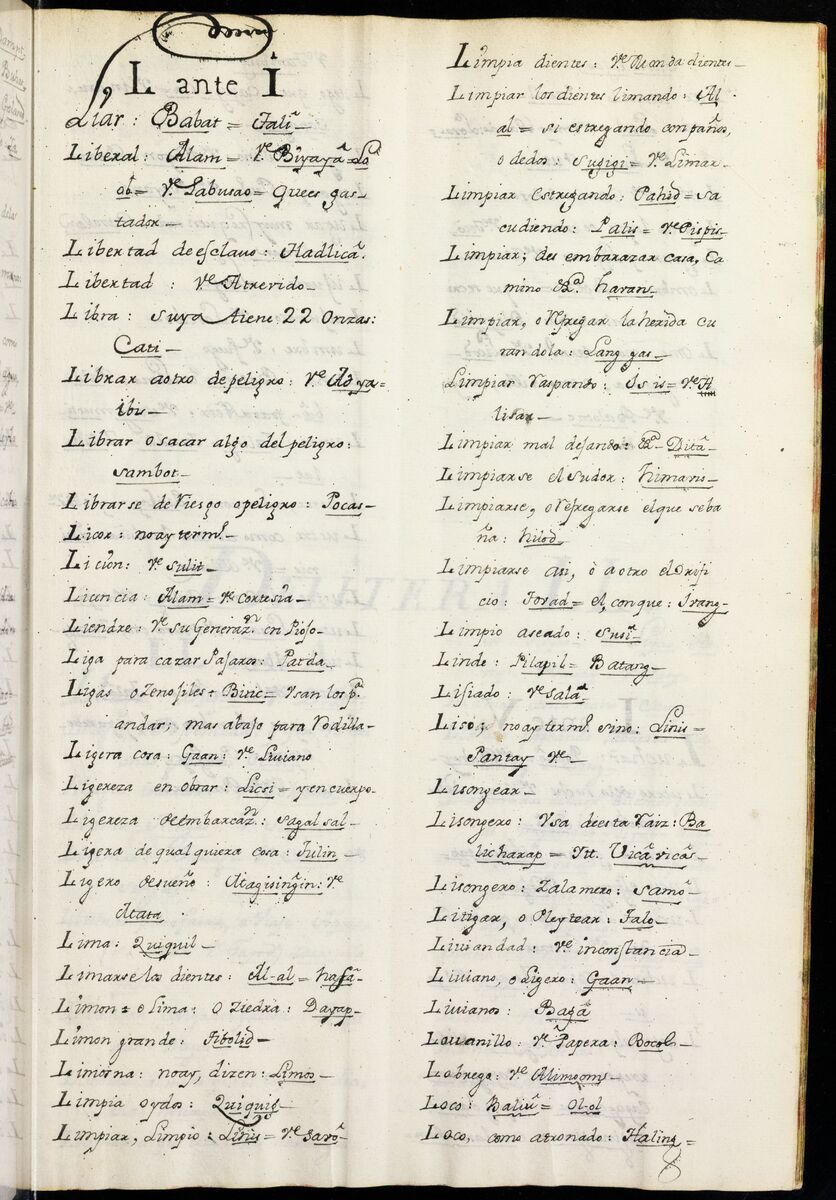 L ante I
Liar: Babat = Tali –
Liberal: Alam = Ve Biyayâ = Lo
ob = Ve Labusao = Quees gas-
tador –
Libertad de esclauo: Hadlicâ.
Libertad: Ve Atrevido –
Libra: suya tiene 22 onzas:
Cati –
Librar aotro de peligro: Ve Adya=
ibis –
Librar o sacar algo del peligro:
Sambot –
Librarse de Riesgo o peligro: Pocas –
Licor: no ay termo. –
Lición: Ve Sulit –
Licencia: Alam = Ve Cortesia –
Liendre: Ve su Generazn. en Piojo –
Liga para cazar Pajaros: Patda –
Ligas o Zenojiles = Biric = Vsan los pa.
andar; mas abajo para Rodilla –
Ligera cosa: Gaan: Ve Liuiano
Ligereza en obrar: Licsi = y en cuerpo –
Ligereza de embarcazn: sagalsal –
Ligera de qualquiera cosa: Tulin –
Ligero de sueño: Atagisingin: Ve
Atata
Lima: Quiquil –
Limarse los dientes: Al-al = hasâ –
Limon = o Lima: o Ziedra: Dayap –
Limon grande: Tibolid –
Limosna: no ay, dizen: Limos –
Limpia oydos: Quiquig –
Limpiar, Limpio: Linis = Ve Sarô –
Limpia dientes: Ve Monda dientes –
Limpiar los dientes limando: Al
al = si estregando con paños,
o dedos: Sugigi = Ve Limar –
Limpiar estregando: Pahid = sa
cudiendo: Palis = Ve Pispis
Limpiar; desembarazar casa, Ca
mino &a. havan
Limpiar, o Refregar la herida cu
randola: Lang gas –
Limpiar Raspando: Is is = Ve A
lisar –
Limpiar mal dejando: &a – Ditâ –
Limpiarse el sudor: himaris –
Limpiarse, o Refregarse el que se ba
ña: hilod –
Limpiarse asi, ò a otro el Orifi
cio: Forad = el, con que: Irang –
Limpio aseado: Susi –
Linde: Pilapil = Batang –
Lisiado: Ve Salat –
Liso; no ay termo. sino: Linis =
Pantay Ve –
Lisongear –
Lisongero: Vsa de esta Raiz: Ba
licharap = Itt. Vicâ vicâ –
Lisongero: Zalamero: Samô –
Litigar, o Pleytear: Talo –
Liuiandad: Ve inconstancia –
Liuiano, o Ligero: Gaan –
Liuianos: Bagâ
Louanillo: Ve Papera: Bocol –
Lobrego: Ve Alimoom –
Loco: Baliu = Ol-ol
Loco, como atronado: Haling =